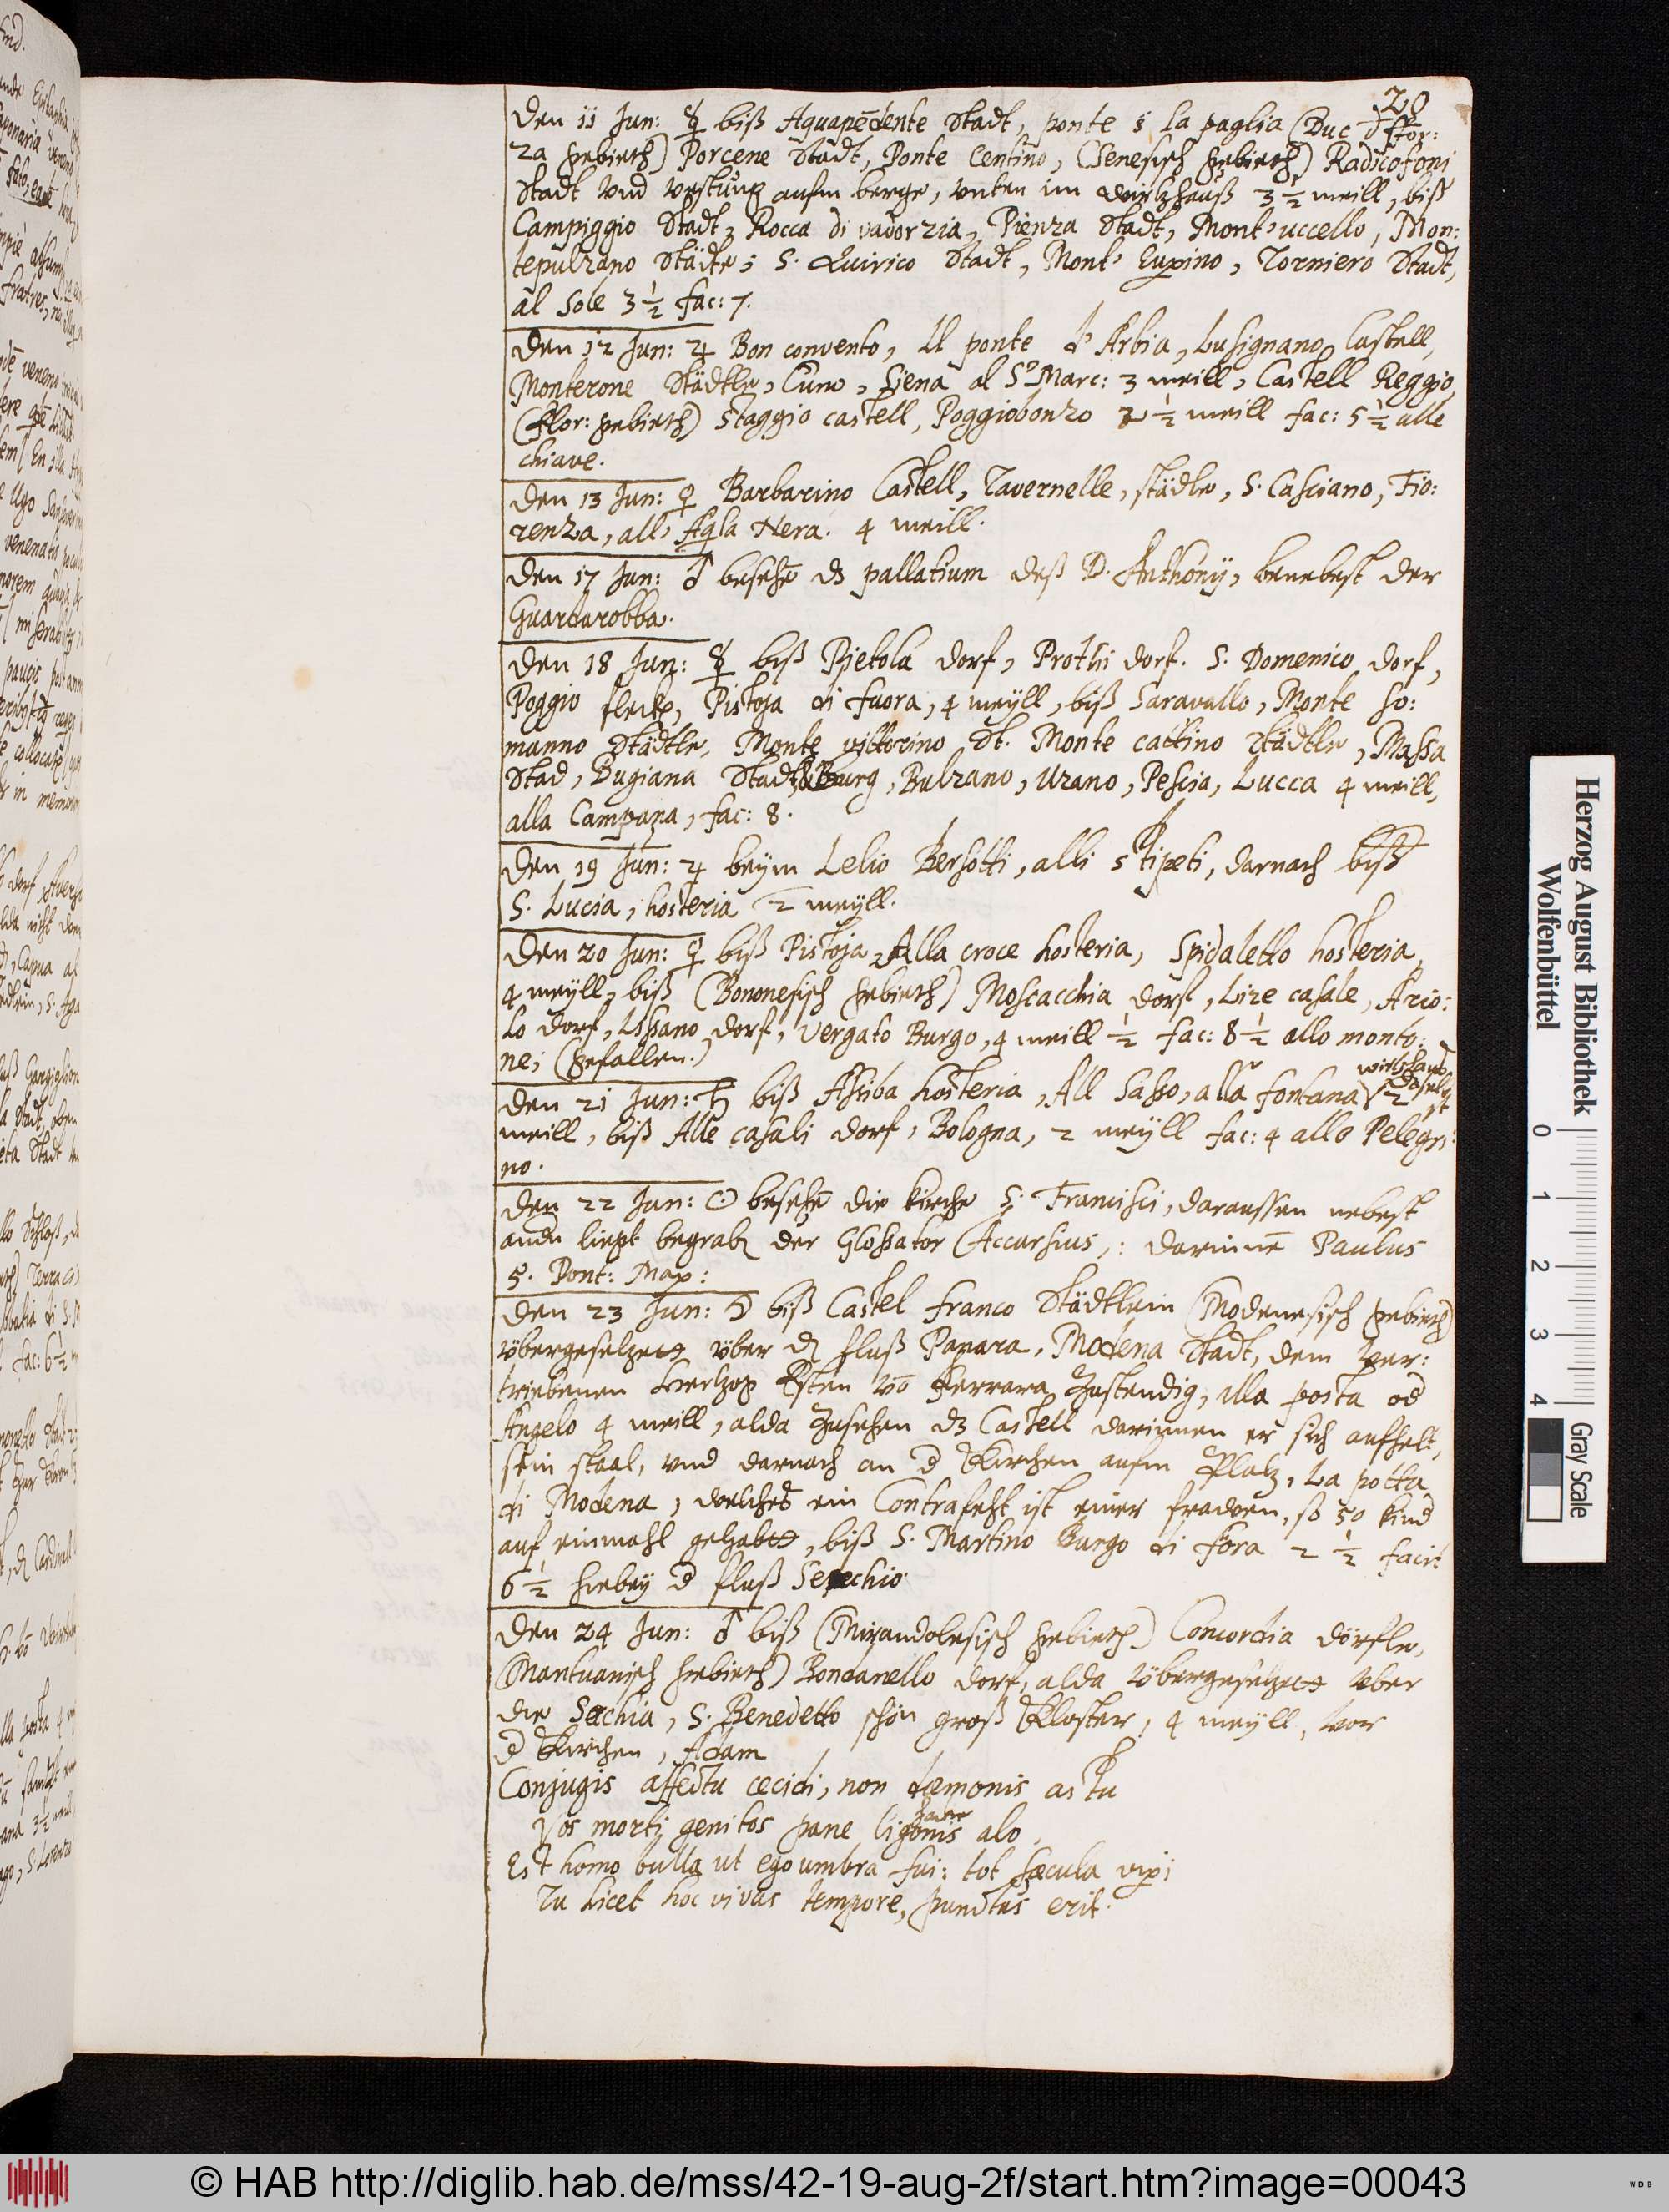 20
Den 11 Jun: ☿ biß Aquapēdente Stadt, ponte s la paglia (Duc d Sfor:
za gebieth) Porcene Stadt, Ponte Centino, (Senesisch gebieth) Radicofoni
Stadt vnd vestung aufm berge, vnten im Wirtzhauß 3 ½ meill, biß
Campiggio Stadt, Rocca di vadorzia, Pienza Stadt, Mont' uccello, Mon:
tepulzano Städtle; S. Quirico Stadt, Mont' Eupino, Torniero Stadt,
al Sole 3 ½ fac: 7.
Den 12 Jun: ♃ Bon convento, Il ponte d' Arbia, Lusignano Castell,
Monterone Städtle, Cuno, Siena al S. Marc: 3 meill, Castell Reggio
(Flor: gebieth) Staggio castell, Poggiobonzo 2 ½ meill fac: 5 ½ alle
chiave.
Den 13 Jun: ♀ Barbarino Castell, Tavernelle, städle, S. Casciano, Fio:
renza, all' Aqla Nera. 4 meill.
Den 17 Jun: ♂ besehē dz pallatium deß D. Anthonij, benebest der
Guardarobba.
Den 18 Jun: ☿ biß Pietola dorf, Prothi dorf. S. Domenico dorf,
Poggio fleck, Pistoja di fuora, 4 meyll, biß Saravallo, Monte so:
manno Städtle, Monte vittorino St. Monte cattino Städtle, Massa
Stad, Bugiana Stadt, Burg, Bulzano, Uzano, Pescia, Lucca 4 meill,
alla Campana, fac: 8.
Den 19 Jun: ♃ beym Lelio Bersotti, alli stipeti, darnach biß
S. Lucia, hosteria ½ meyll.
Den 20 Jun: ♀ biß Pistoja, Alla croce hosteria, Spidaletto hosteria,
4 meyll, biß (Bononesisch gebieth) Moscacchia dorf, Lize casale, Ario:
lo dorf, Ussano dorf, Vergato Burgo, 4 meill ½ fac: 8 ½ allo monto:
ne; (gefallen.)
Den 21 Jun: ♄ biß Assiba hosteria, All Sasso, alla fontana wirtshauß daselbst 2
meill, biß Alle casali dorf, Bologna, 2 meyll fac: 4 allo Pelegri:
no.
Den 22 Jun: ☉ besehē die kirche S. Francisci, daraussen nebest
andn liegt begrabē der Glossator Accursius,: darinnē Paulus
5. Pont: Max:
Den 23 Jun: ☽ biß Castel franco Städtlein (Modenesisch gebieth)
vbergesetzet vber dē fluß Panara, Modena Stadt, dem Ver:
triebenen Hertzog Esten vō Ferrara zustendig, alla posta od
Angelo 4 meill, alda zusehen dz Castell darinnen er sich aufhelt,
sein staal, vnd darnach an d Kirchen aufm Platz, La potta
di Modena, welches ein Contrafeht ist einer frawen, so 50 kind
auf einmahl gehabt, biß S. Martino Burgo di fora 2 ½ facit
6 ½ hiebey d fluß Secchio
Den 24 Jun: ♂ biß (Mirandolesisch gebieth) Concordia dörfle,
(Mantuanisch gebieth) Bondanello dorf, alda vbergesetzet vber
die Sechia, S. Benedetto schön groß Kloster, 4 meyll, vor
d Kirchen, Adam
Conjugis affectu cecidi, non dæmonis astu
Vos morti genitos pane ligonis alo,
Est homo bulla ut ego umbra fui: tot sæcula vixi
Tu licet hoc vivas tempore, punctus erit.
Herzog August Bibliothek
Wolfenbüttel
0 1 2 3 4
Gray Scale
© HAB http://diglib.hab.de/mss/42-19-aug-2f/start.htm?image=00043
WDB